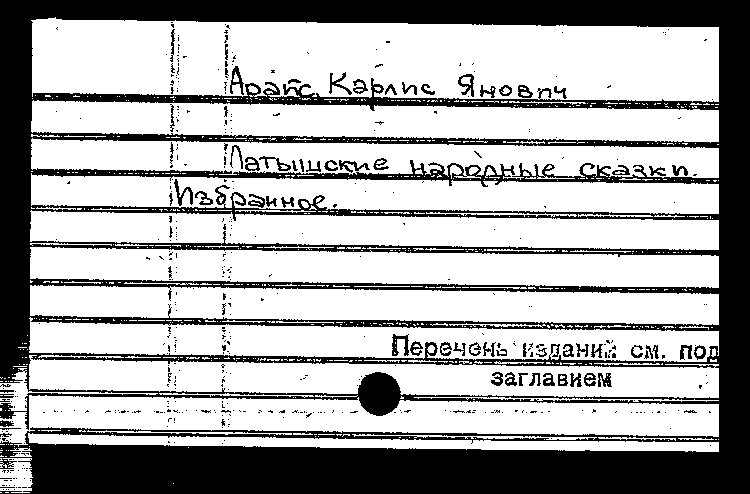 Арайс, Карлис Янович
Латышские народные сказки.
Избранное.
Перечень изданий см. под
заглавием